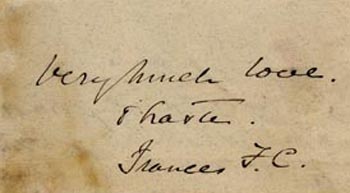 Very much love.
Frances F. C.